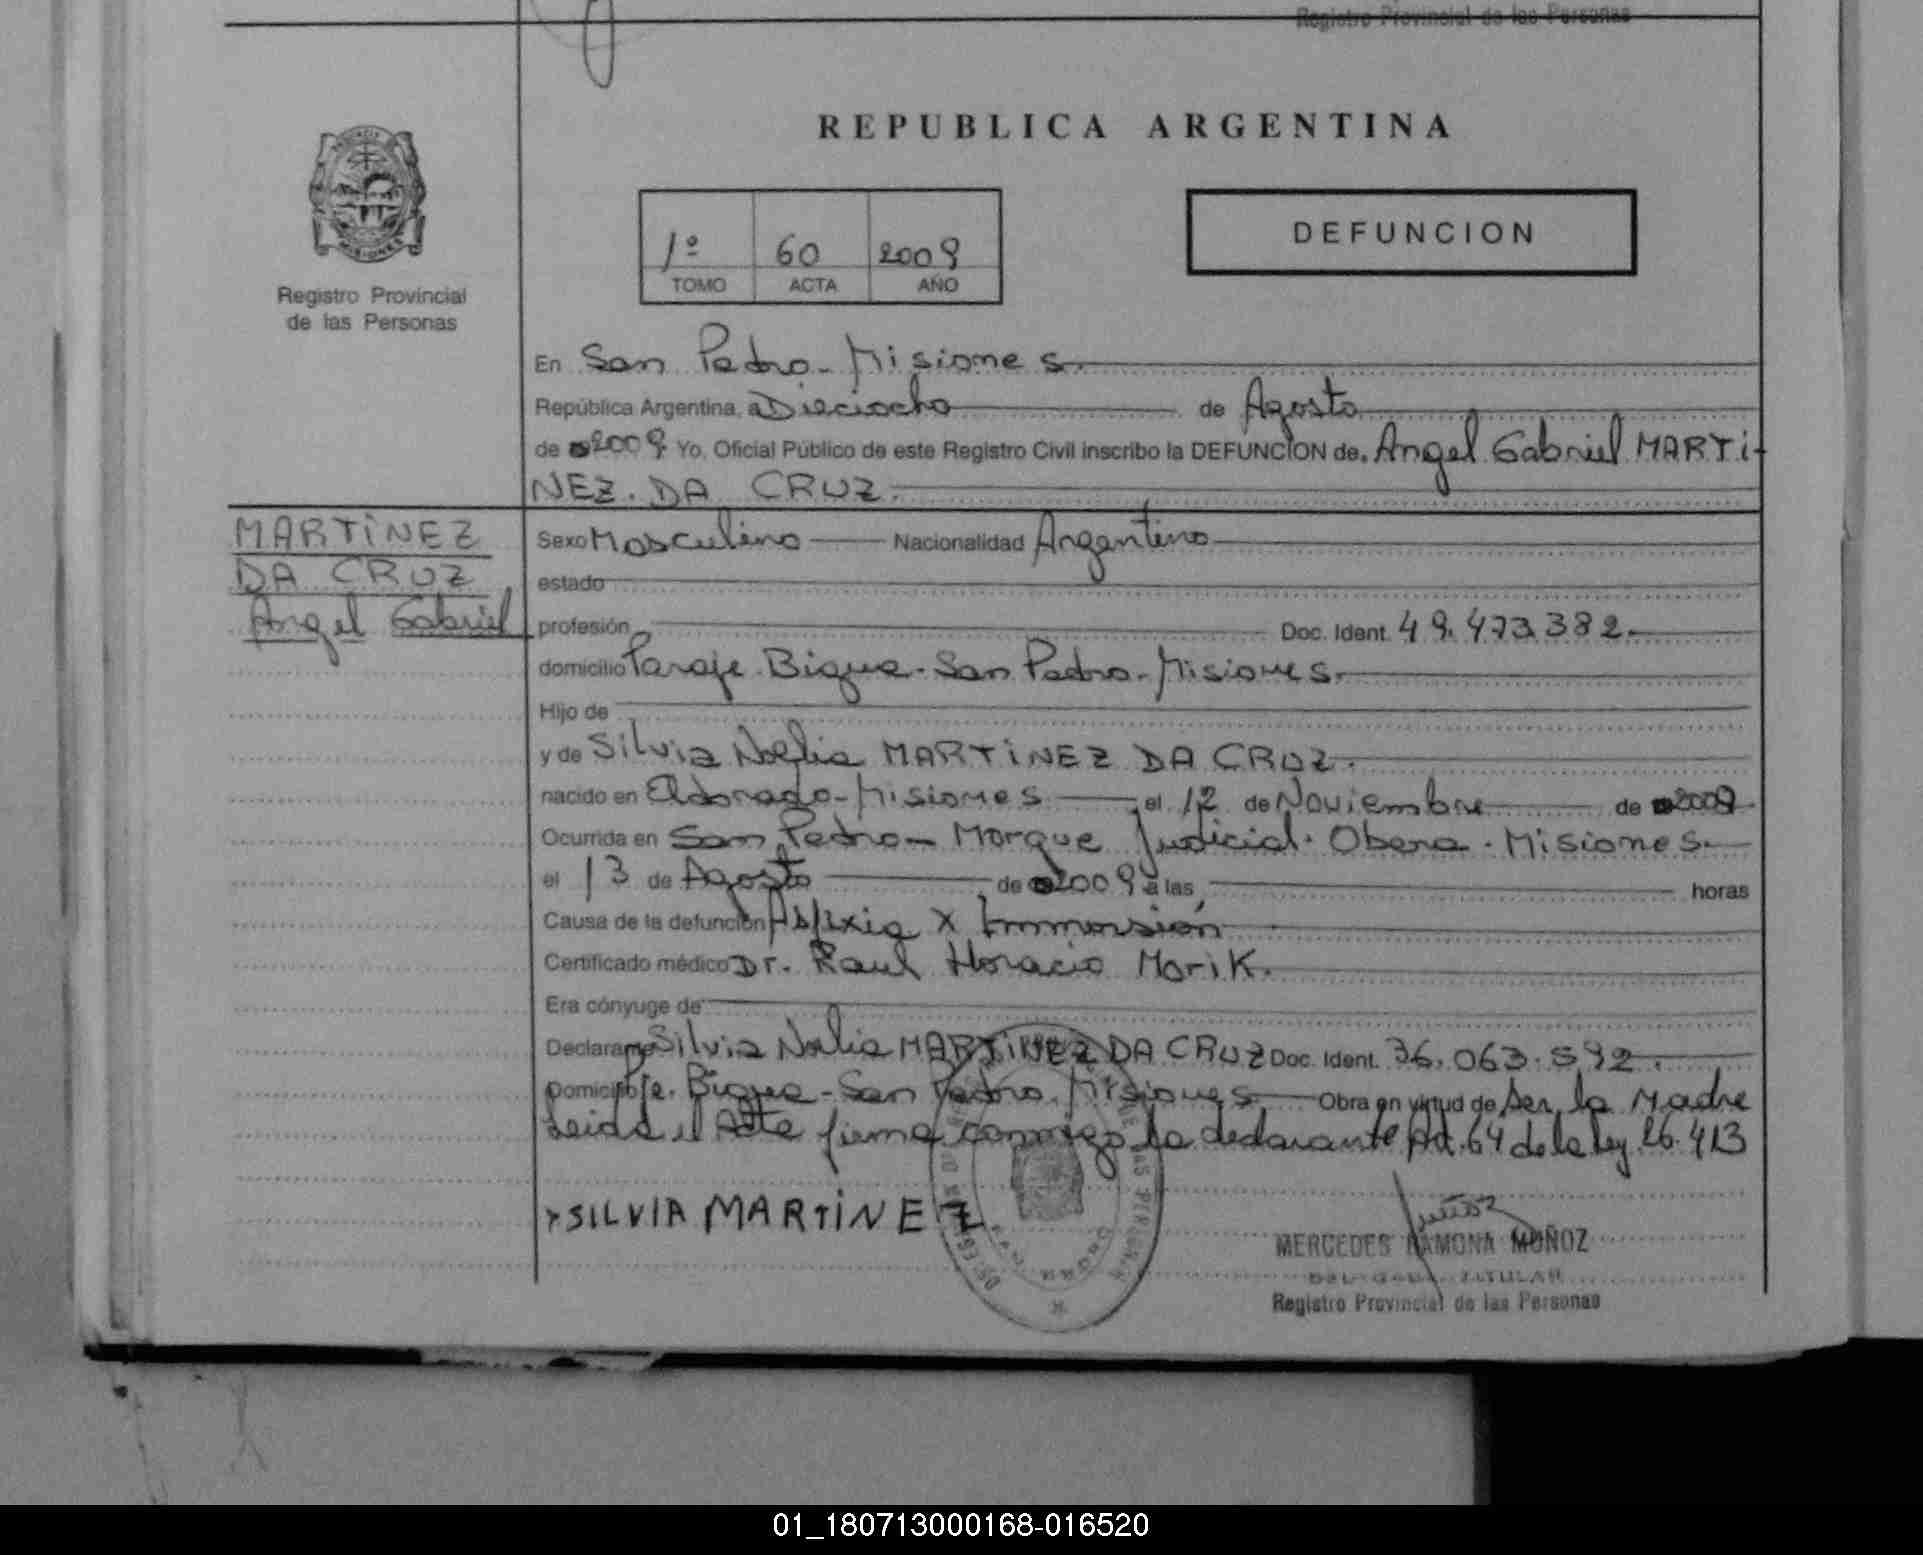 Registro Provincial de las Personas
REPUBLICA ARGENTINA
1º 60 2009
TOMO ACTA AÑO
DEFUNCION
Registro Provincial
de las Personas
En San Pedro - Misiones.
República Argentina, a Dieciocho de Agosto
de 2009 Yo, Oficial Público de este Registro Civil inscribo la DEFUNCION de, Angel Gabriel MARTI-
NEZ. DA CRUZ.
MARTINEZ
DA CRUZ
Angel Gabriel
Sexo Masculino Nacionalidad Argentino
estado
profesión Doc. Ident. 49.473.382.
domicilio Paraje Bigua - San Pedro - Misiones.
Hijo de
y de Silvia Noelia MARTINEZ DA CRUZ.
nacido en Eldorado - Misiones el 12 de Noviembre de
Ocurrida en San Pedro - Morgue Judicial. Obera - Misiones.
el 13 de Agosto de 2009 a las horas
Causa de la defunción Asfixia x Inmersión
Certificado médico Dr. Raul Horacio Morik.
Era cónyuge de
Declarante Silvia Noelia MARTINEZ DA CRUZ Doc. Ident. 36.063.592.
Domicilio Pje. Bigua - San Pedro. Misiones Obra en virtud de Ser la Madre
Leida el Acta firma conmigo la declarante Art. 64 de la ley 26.413
SILVIA MARTINEZ
MERCEDES RAMONA MUÑOZ
DELEGADA TITULAR
Registro Provincial de las Personas
01_180713000168-016520